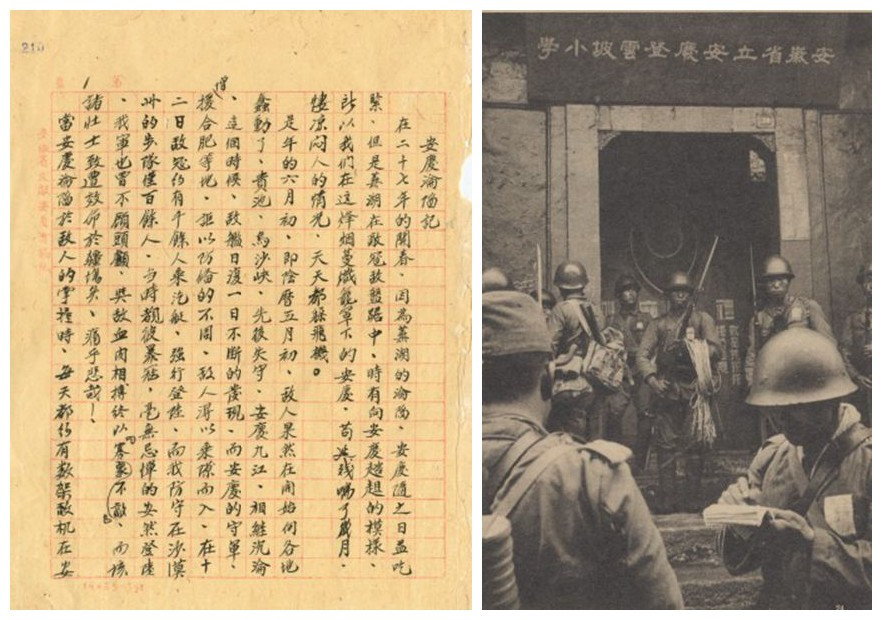 210
安慶淪陷記
在二十七年的開春、因為蕪湖的淪陷、安慶隨之日益吃
緊、但是蕪湖在敵寇盤踞中、時有向安慶趑趄的模樣、
所以我們在這烽烟蔓熾籠罩下的安慶、苟延殘喘了歲月、
悽凉悶人的情况、天天都躲飛機。
是年的六月初、即陰曆五月初、敵人果然在開始向各地
蠢動了、貴池、馬沙峽、先後失守、安慶九江、相繼沉淪
、這個時候、敵艦日復一日不斷的發現、而安慶的守軍、
增援合肥等地、詎以防的不周、敵人得以乘隙而入、在十
二日敵寇約有千餘人乘汽艇、強行登陸、而我防守在沙漠
洲的步隊僅百餘人、当時覩彼暴寇、毫無忌憚的安然登陸
、我軍也冒不顧頭顱、與敵血肉相搏終以寡眾不敵、而該
諸壯士致遭效命於疆場矣、痛乎悲哉！
當安慶淪陷於敵人的掌握時、每天都約有數架敵机在安
安徽省立安慶登雲坡小學